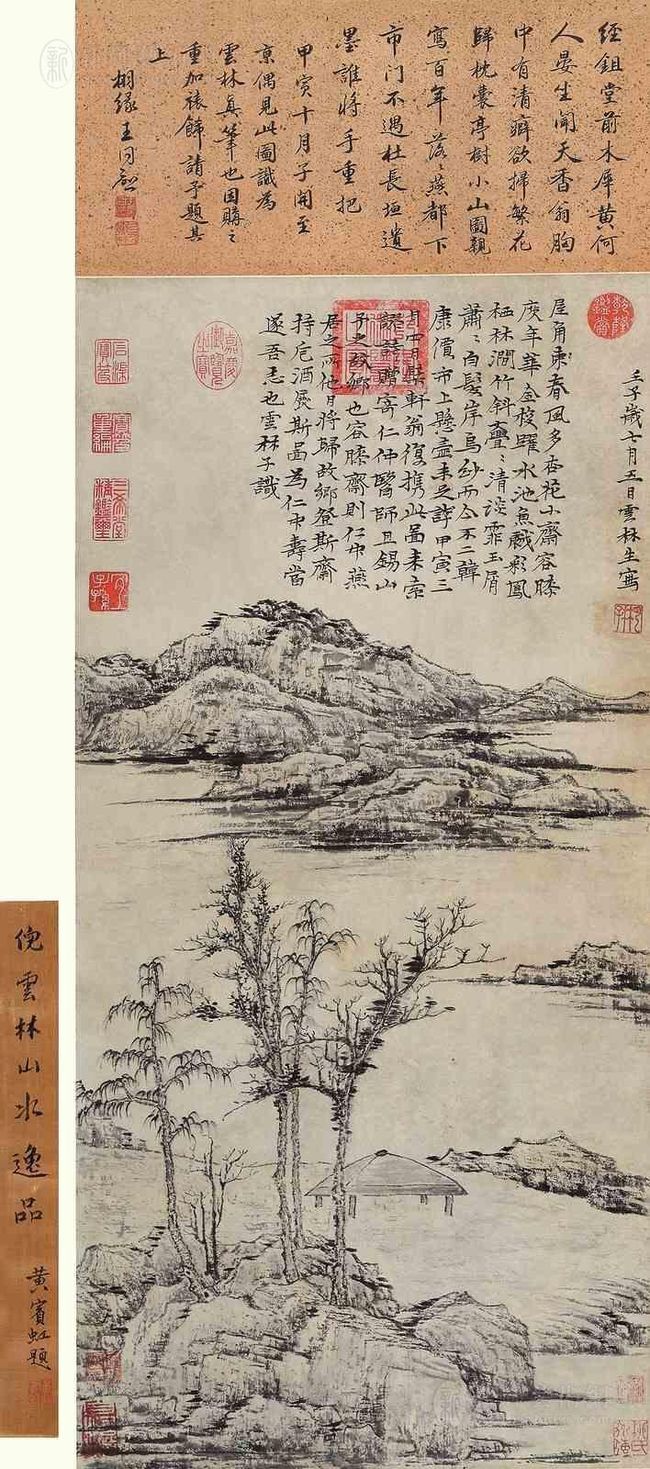 經鉏堂前木犀黃何
人晏坐聞天香翁胸
中有清癖欲掃繁花
歸枕囊亭樹小山圖親
寫百年落〻燕都下
市门不遇杜長垣遺
墨誰將手重把
甲寅十月子開至
京偶見此圖識為
雲林真筆也因購之
重加裱飾請予題其
上
栩緣王同愈
乾隆鑑賞
壬子歲七月五日雲林生寫
屋角春風多杏花小齋容膝
度年華金梭躍水池魚戲彩鳳
栖林澗竹斜亹〻清談霏玉屑
蕭〻白髮岸烏紗而今不二韓
康價市上懸壺未足誇甲寅三
月四日檗軒翁復携此圖来索
謬詩贈寄仁仲醫師且錫山
予之故鄉也容膝齋則仁仲燕
居之所他日將歸故鄉登斯齋
持卮酒展斯圖為仁仲壽當
遂吾志也雲林子識
嘉慶御覽之寶
石渠寶笈
寶笈重編
三希堂精鑑璽
宜子孫
倪雲林山水逸品
黃賓虹題